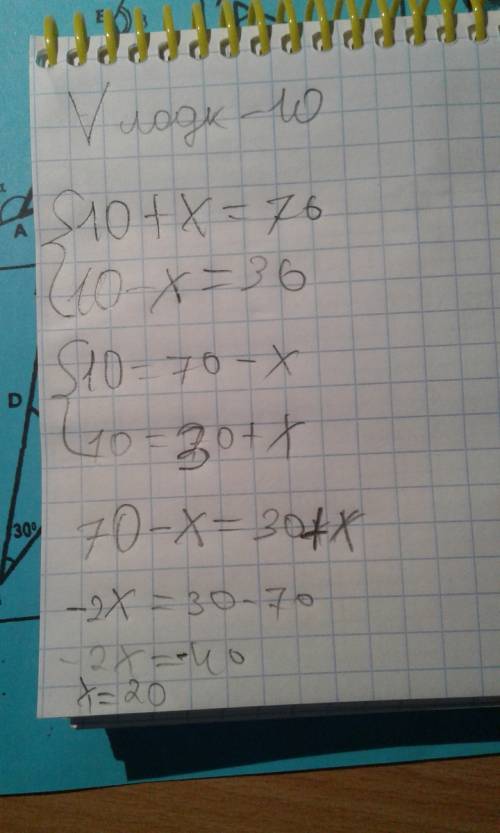 E
V лодк - 10
A
{10 + x = 70
{10 - x = 30
{10 = 70 - x
D
{10 = 30 + x
30°
70 - x = 30 + x
-2x = 30 - 70
-2x = -40
x = 20